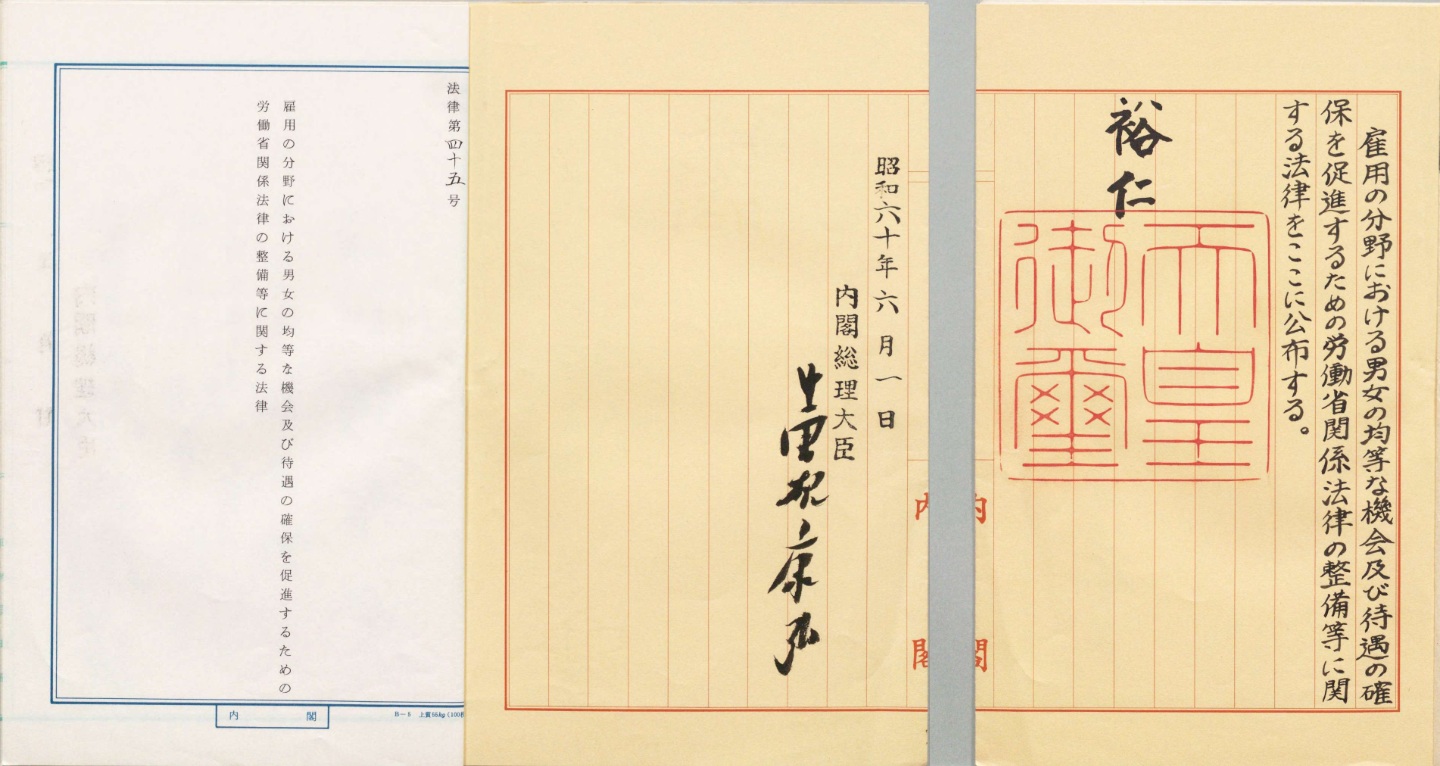 雇用の分野における男女の均等な機会及び待遇の確
保を促進するための労働省関係法律の整備等に関
する法律をここに公布する。
裕仁
天皇
御璽
内閣
昭和六十年六月一日
内閣総理大臣
中曽根康弘
法律第四十五号
雇用の分野における男女の均等な機会及び待遇の確保を促進するための
労働省関係法律の整備等に関する法律
内閣
B-5 上質55kg(100